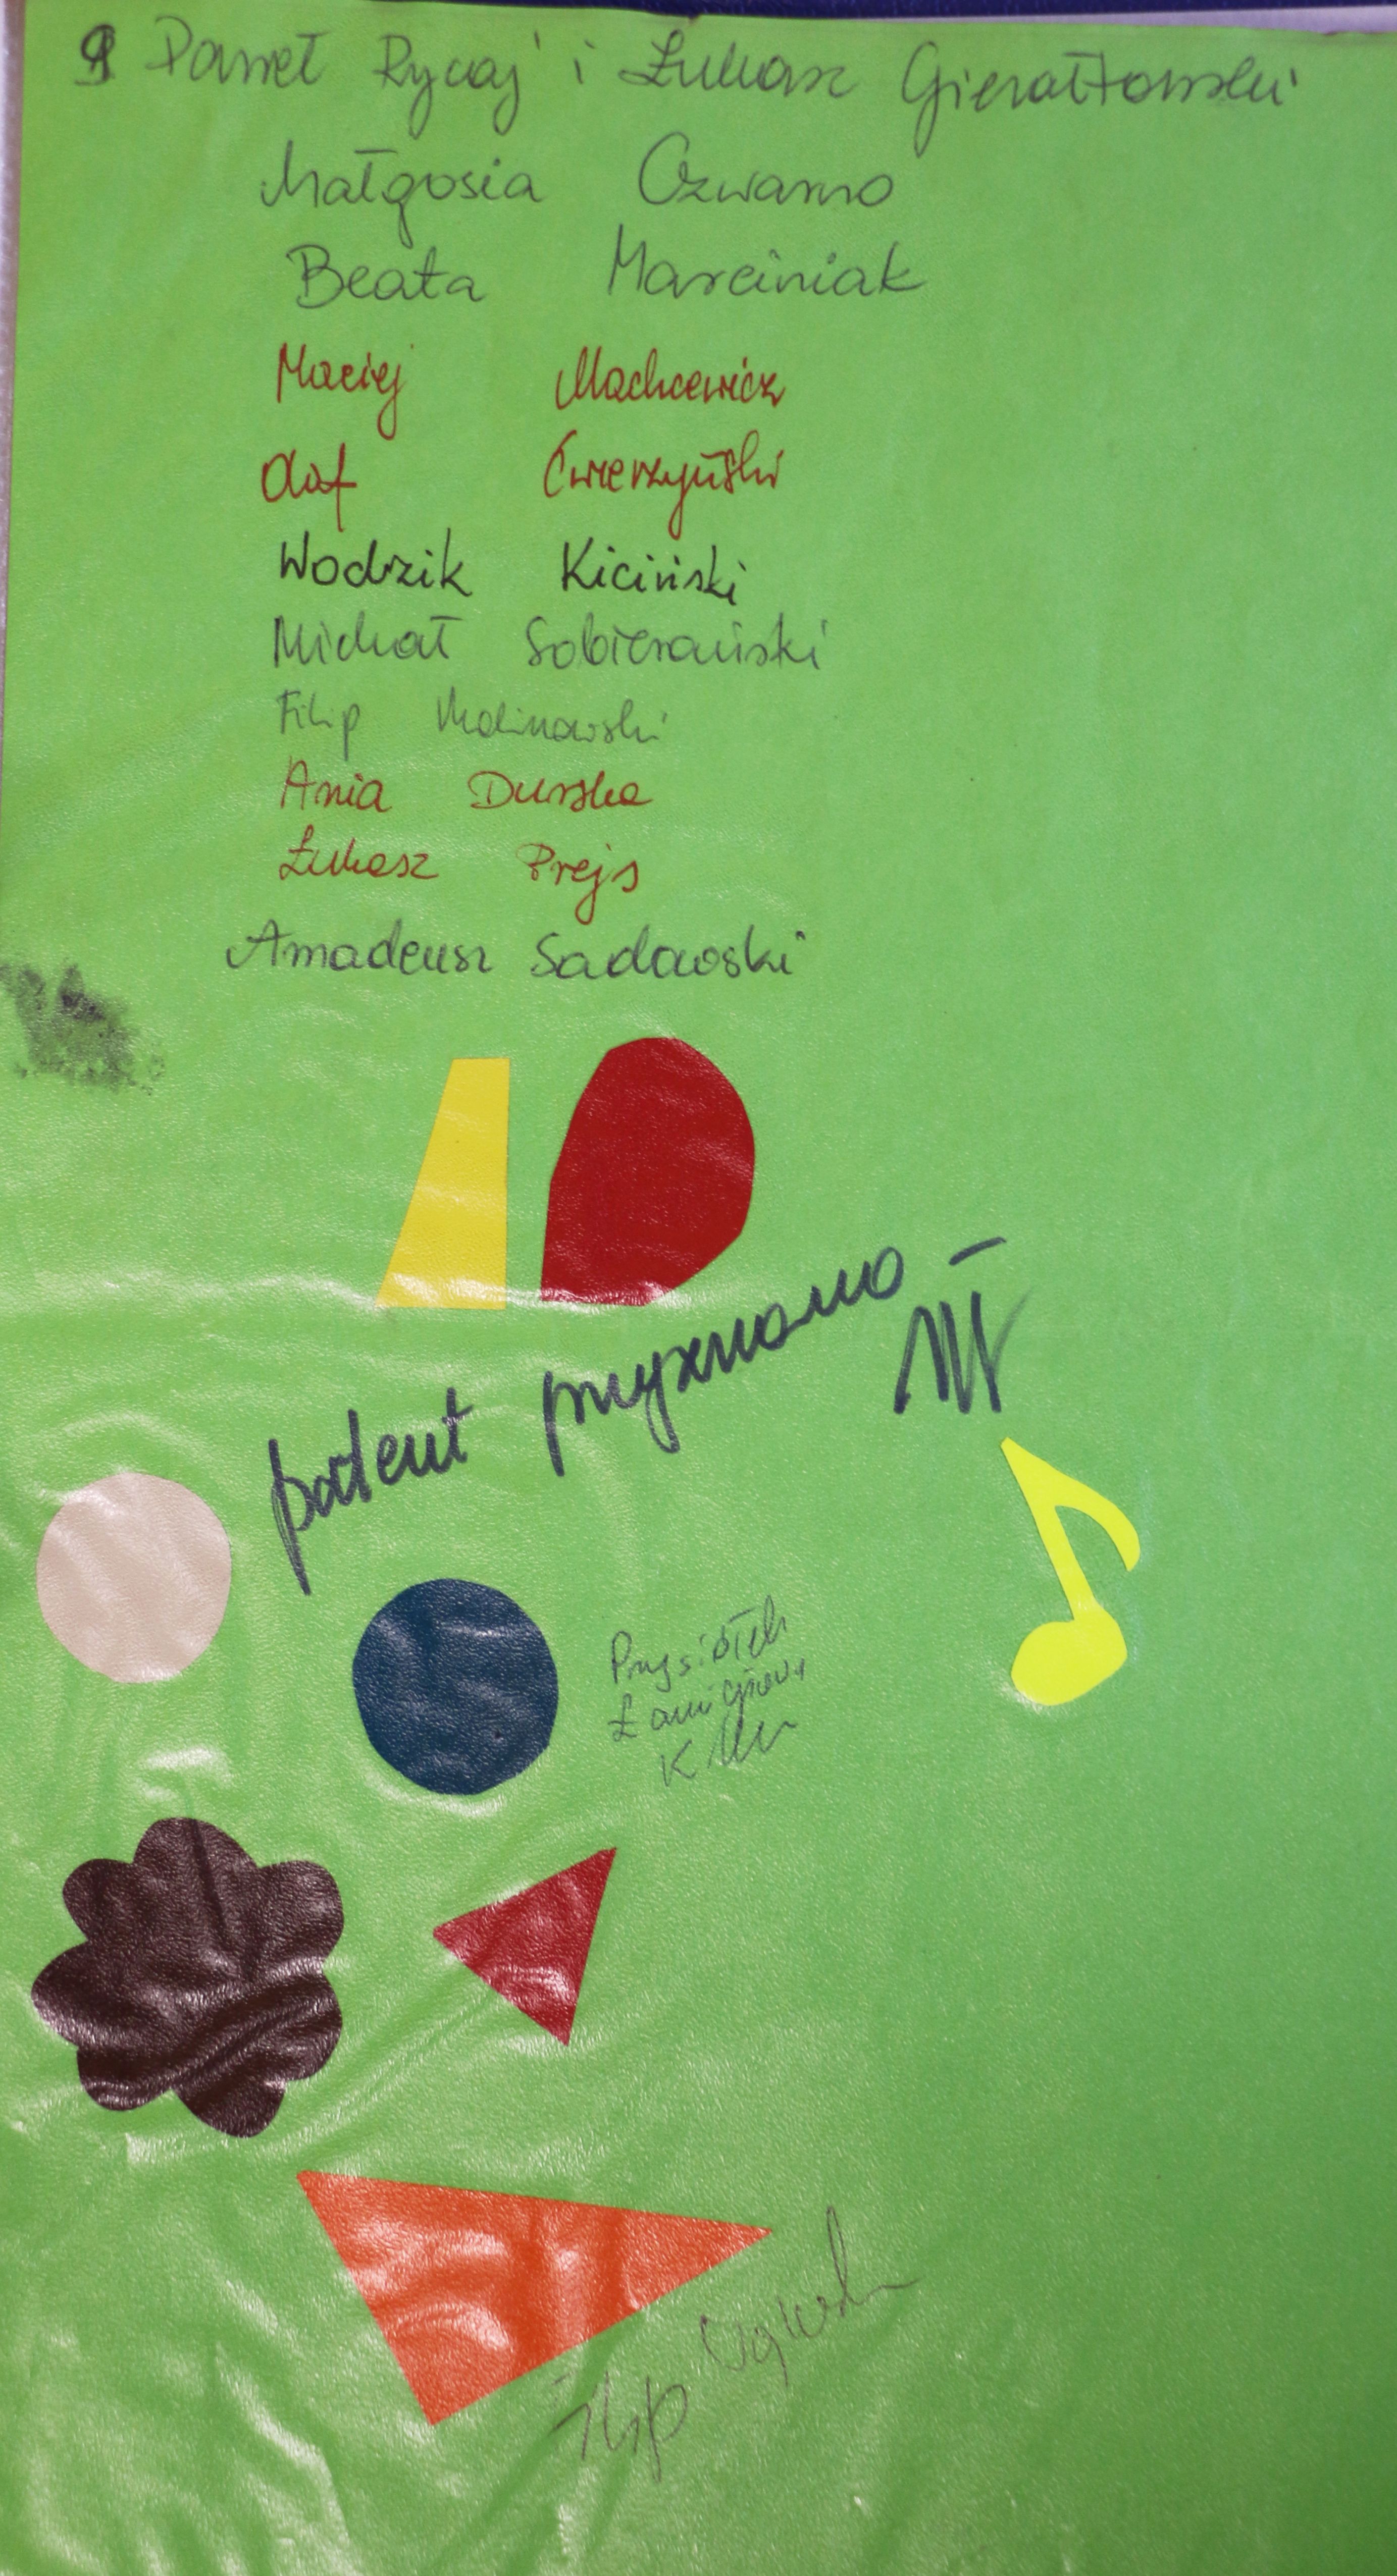 Paweł Rycaj i Łukasz Gierałtowski
Małgosia Czwarno
Beata Marciniak
Maciej Machcewicz
Olaf Ćwierzyński
Wodzik Kiciński
Michał Sobierański
Filip Malinowski
Ania Durska
Łukasz Prejs
Amadeusz Sadowski
patent przyznano –
Przysiółek
Filip